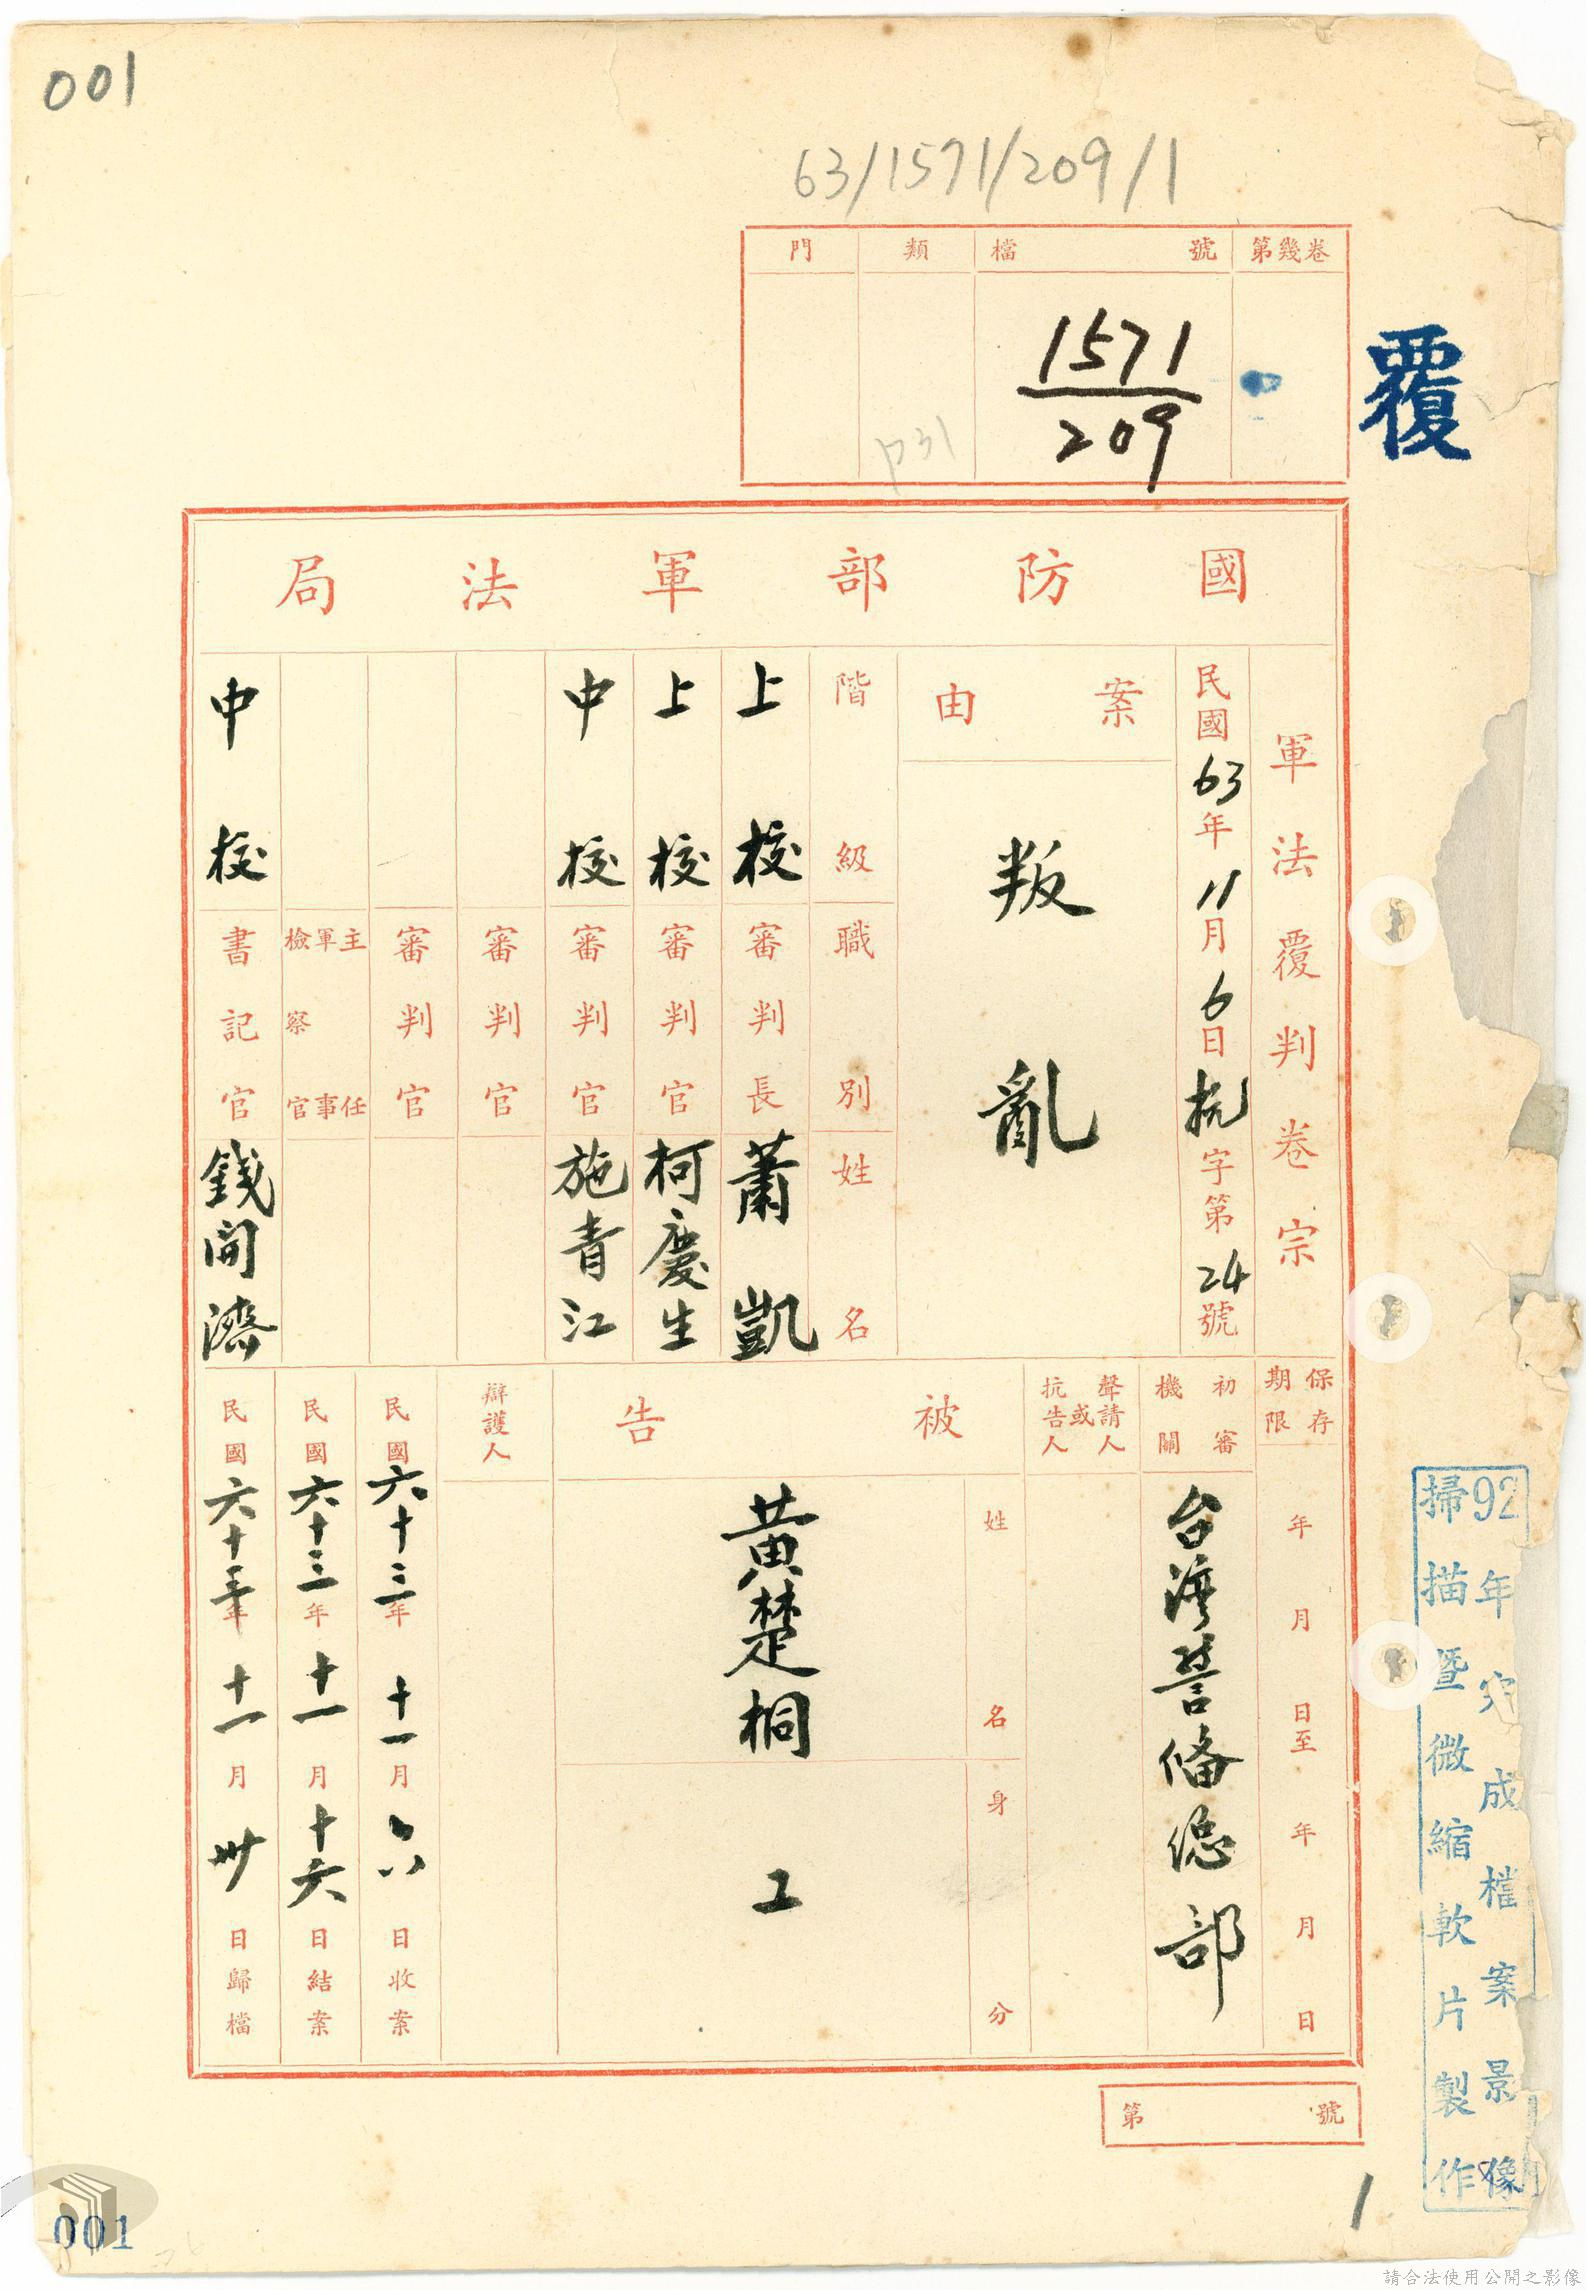 001
63/1571/209/1
第幾卷
檔號
類
門
1571
209
p31
覆
國防部軍法局
軍法覆判卷宗
民國63年11月6日抗字第24號
案由
叛亂
階級
職別
姓名
上校
審判長
蕭凱
上校
審判官
柯慶生
中校
審判官
施青江
審判官
審判官
主任軍事檢察官
中校
書記官
錢開濟
保存期限
年月日至年月日
初審機關
台灣警備總部
聲請人或抗告人
被告
姓名
黃楚桐
身分
工
辯護人
民國六十三年十一月六日收案
民國六十三年十一月十六日結案
民國六十三年十一月卅日歸檔
92年完成檔案景像
掃描暨微縮軟片製作
第號
1
001
請合法使用公開之影像